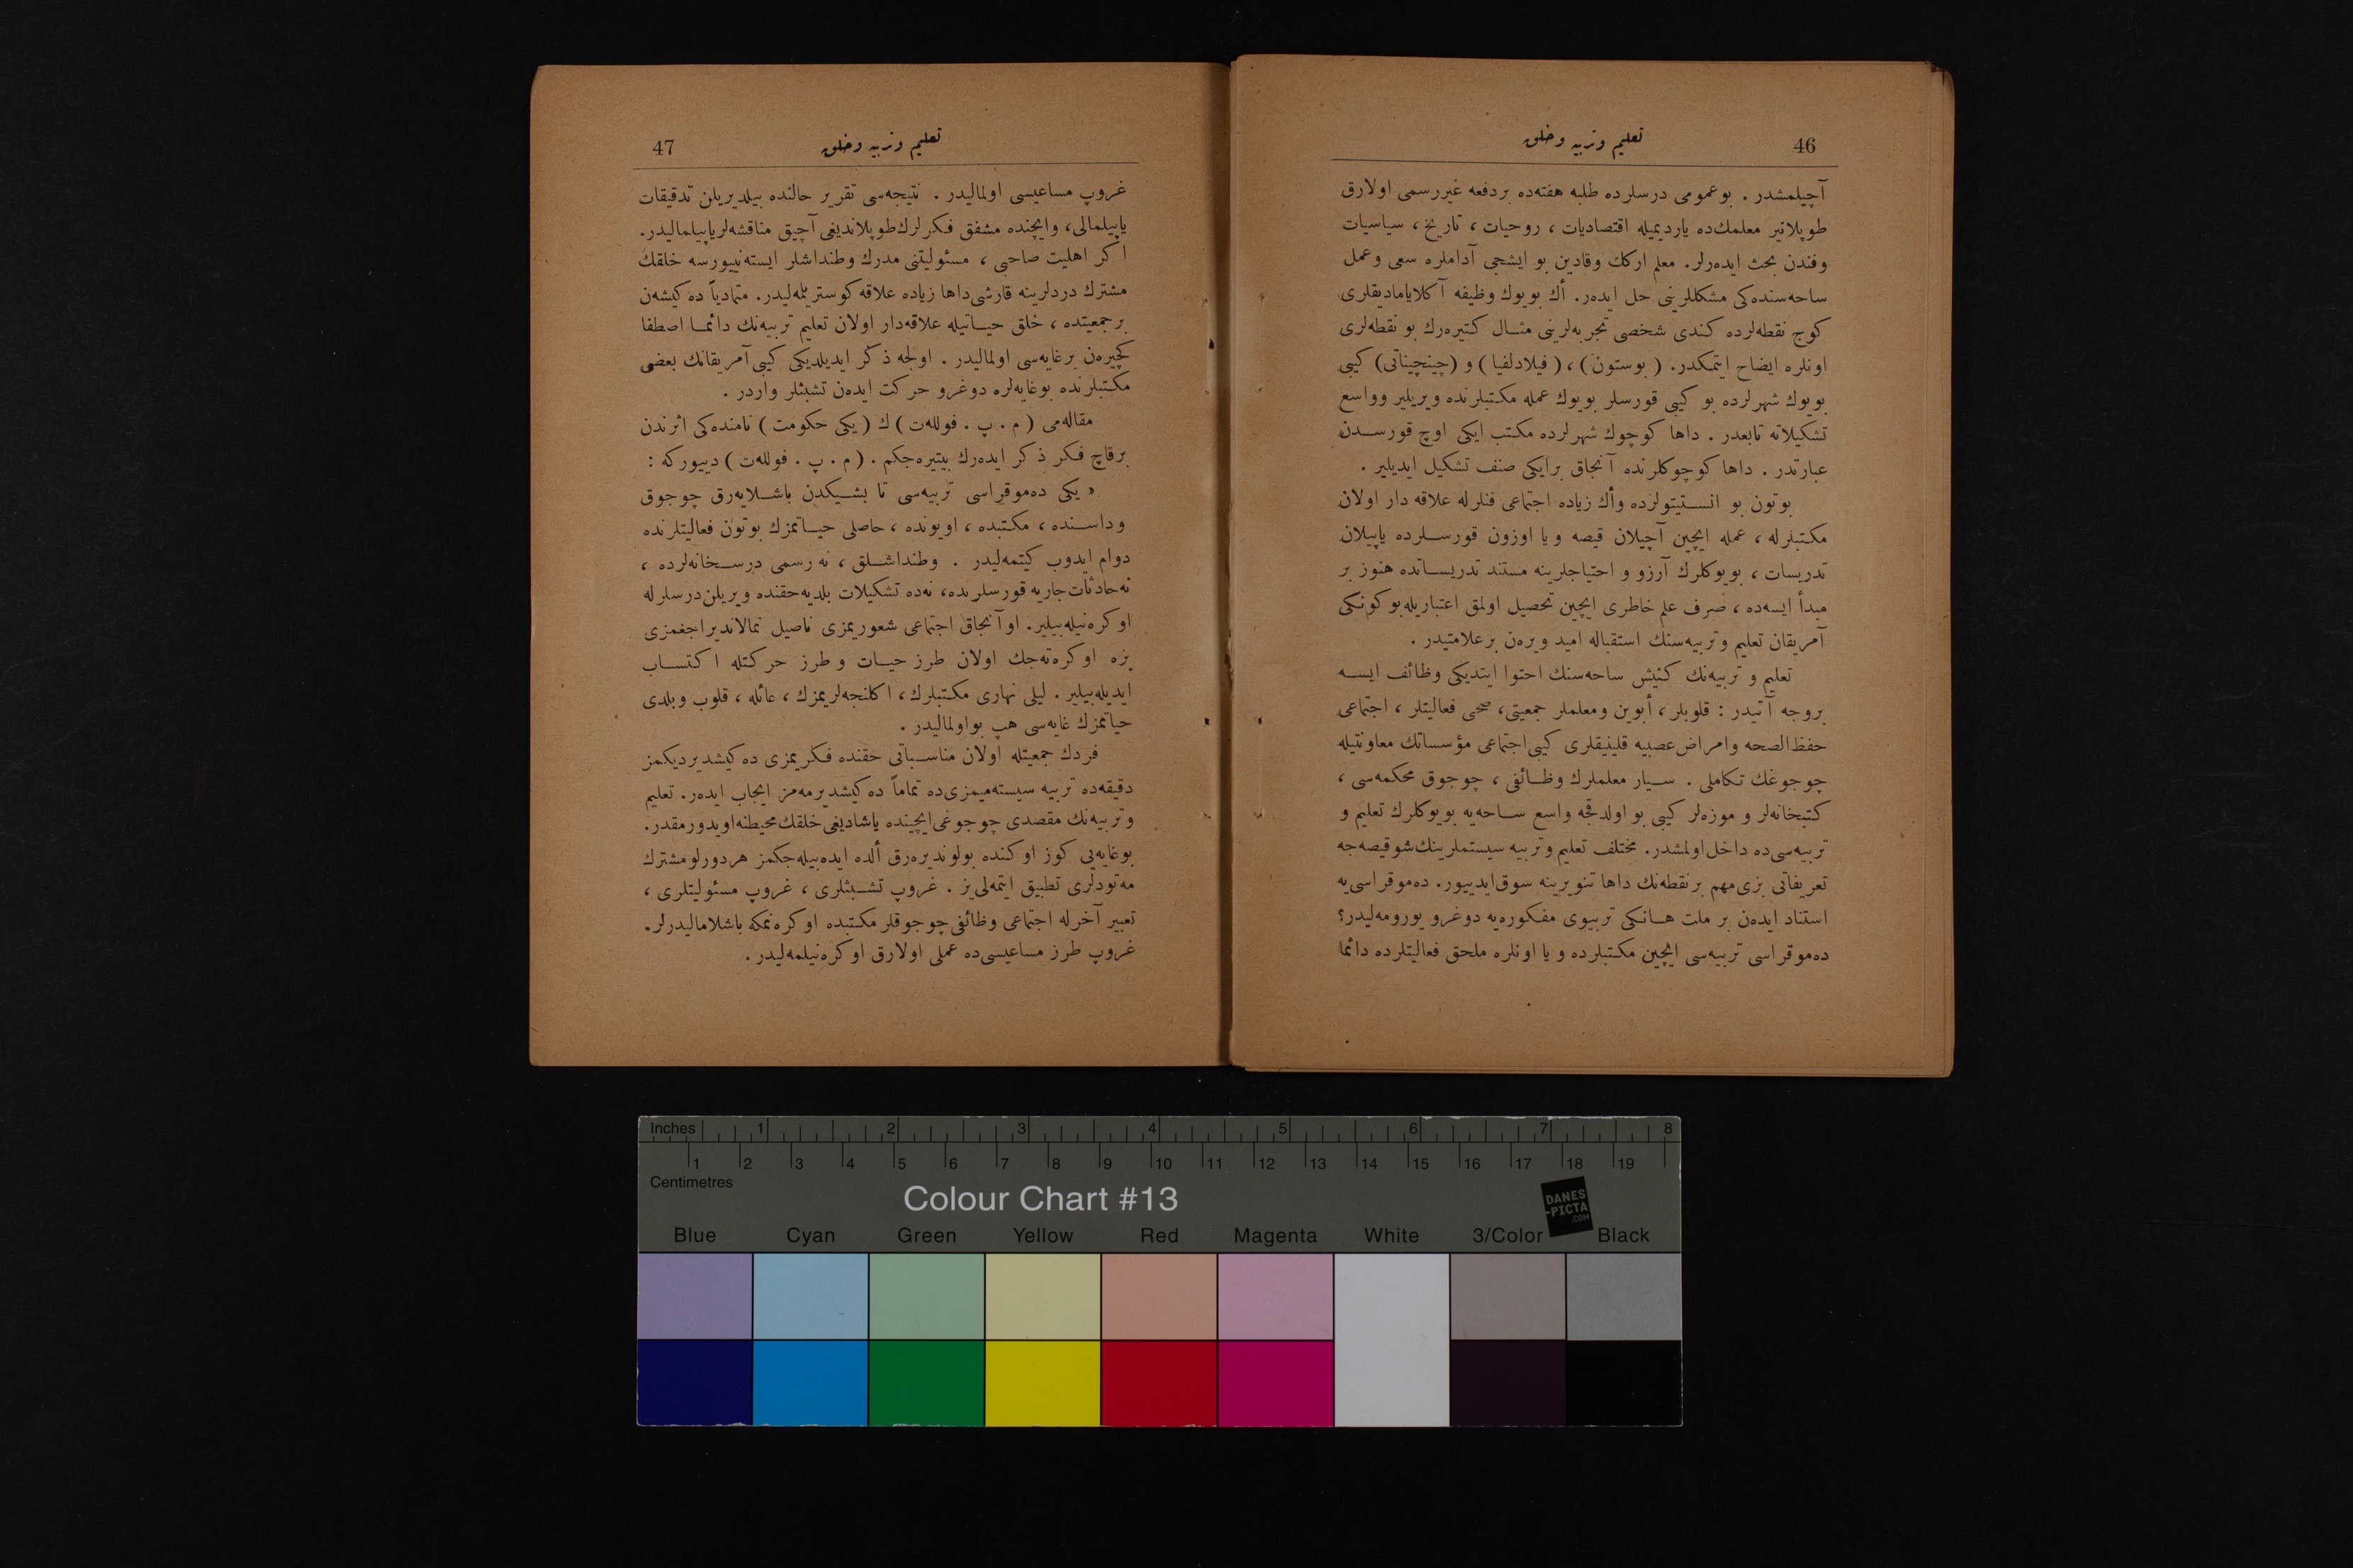 46
تعليم وتربيه وخلق
آچيلمشدر . بوعمومی درسلرده طلبه هفته‌ده بردفعه غيررسمی اولارق
طوپلانير معلمك‌ده ياردیميله اقتصاديات ، روحيات ، تاريخ ، سياسيات
وفندن بحث ايده‌رلر. معلم اركك وقادين بو ايشجی آداملره سعی وعمل
ساحه‌سنده‌كی مشكللرينی حل ايده‌ر. أك بويوك وظيفه آكلاياماديقلری
كوچ نقطه‌لرده كندی شخصی تجربه‌لرينی مثال كتيره‌رك بو نقطه‌لری
اونلره ايضاح ايتمكدر. ( بوستون ) ، ( فيلادلفيا ) و (چينچيناتی) كيبی
بويوك شهرلرده بو كيبی قورسلر بويوك عمله مكتبلرنده ويريلير وواسع
تشكيلاته تابعدر . داها كوچوك شهرلرده مكتب ايكی اوچ قورسدن
عبارتدر . داها كوچوكلرنده آنجاق برايكی صنف تشكيل ايديلير .
بوتون بو انستيتولرده وأك زياده اجتماعی فنلرله علاقه دار اولان
مكتبلرله ، عمله ايچين آچيلان قيصه ويا اوزون قورسلرده ياپيلان
تدريسات ، بويوكلرك آرزو و احتياجلرينه مستند تدريساتده هنوز بر
مبدأ ايسه‌ده ، صرف علم خاطری ايچين تحصيل اولمق اعتباريله بو كونكی
آمريقان تعليم وتربيه‌سنك استقباله اميد ويره‌ن برعلامتيدر .
تعليم و تربيه‌نك كنيش ساحه‌سنك احتوا ايتديكی وظائف ايسه
بروجه آتيدر : قلوبلر ، أبوين ومعلملر جمعيتی، صحی فعاليتلر ، اجتماعی
حفظ‌الصحه وامراض عصبيه قلينيقلری كيبی اجتماعی مؤسساتك معاونتيله
چوجوغك تكاملی . سيار معلملرك وظائفی ، چوجوق محكمه‌سی ،
كتبخانه‌لر و موزه‌لر كيبی بو اولدقجه واسع ساحه‌يه بويوكلرك تعليم و
تربيه‌سی‌ده داخل اولمشدر. مختلف تعليم وتربيه سيستملرينك شو قيصه‌جه
تعريفاتی بزی مهم برنقطه‌نك داها تنويرينه سوق ايدييور. ده‌موقراسی‌يه
استناد ايده‌ن بر ملت هانكی تربيوی مفكوره‌يه دوغرو يورومه‌ليدر؟
ده‌موقراسی تربيه‌سی ايچين مكتبلرده و يا اونلره ملحق فعاليتلرده دائما
47
تعليم وتربيه وخلق
غروپ مساعيسی اولماليدر . نتيجه‌سی تقرير حالنده بيلديريلن تدقيقات
ياپيلمالی، وايچنده مشفق فكرلرك طوپلانديغی آچيق مناقشه‌لر ياپيلماليدر.
اكر اهليت صاحبی ، مسئوليتنی مدرك وطنداشلر ايسته‌نييورسه خلقك
مشترك دردلرينه قارشی داها زياده علاقه كوستريلمه‌ليدر. متمادياً ده‌كيشه‌ن
برجمعيتده ، خلق حياتيله علاقه‌دار اولان تعليم تربيه‌نك دائما اصطفا
كچيره‌ن برغايه‌سی اولماليدر . اولجه ذكر ايديلديكی كيبی آمريقانك بعضی
مكتبلرنده بوغايه‌لره دوغرو حركت ايده‌ن تشبثلر واردر .
مقاله‌می ( م . پ . فولله‌ت ) ك ( يكی حكومت ) نامنده‌كی اثرندن
برقاچ فكر ذكر ايده‌رك بيتيره‌جكم . ( م . پ . فولله‌ت ) دييوركه :
« يكی ده‌موقراسی تربيه‌سی تا بشيكدن باشلايه‌رق چوجوق
وداسنده ، مكتبده ، اويونده ، حاصلی حياتمزك بوتون فعاليتلرنده
دوام ايدوب كيتمه‌ليدر . وطنداشلق ، نه رسمی درسخانه‌لرده ،
نه‌حادثات جاريه قورسلرنده، نه‌ده تشكيلات بلديه حقنده ويريلن درسلرله
اوكره‌نيله‌بيلير. او آنجاق اجتماعی شعوريمزی ناصيل نمالانديراجغمزی
بزه اوكره‌ته‌جك اولان طرز حيات و طرز حركتله اكتساب
ايديله‌بيلير . ليلی نهاری مكتبلرك ، اكلنجه‌لريمزك ، عائله ، قلوب وبلدی
حياتمزك غايه‌سی هپ بواولماليدر .
فردك جمعيتله اولان مناسباتی حقنده فكريمزی ده‌كيشديرديكمز
دقيقه‌ده تربيه سيسته‌ميمزی‌ده تماماً ده‌كيشديرمه‌مز ايجاب ايده‌ر. تعليم
وتربيه‌نك مقصدی چوجوغی ايچينده ياشاديغی خلقك محيطنه اويدورمقدر.
بوغايه‌يی كوز اوكنده بولونديره‌رق ألده ايده‌بيله‌جكمز هردورلو مشترك
مه‌تودلری تطبيق ايتمه‌لی‌يز . غروپ تشبثلری ، غروپ مسئوليتلری ،
تعبير آخرله اجتماعی وظائفی چوجوقلر مكتبده اوكره‌نمكه باشلاماليدرلر.
غروپ طرز مساعيسی‌ده عملی اولارق اوكره‌نيلمه‌ليدر .
Inches 1 2 3 4 5 6 7 8
1 2 3 4 5 6 7 8 9 10 11 12 13 14 15 16 17 18 19
Centimetres
Colour Chart #13
DANES
-PICTA
.COM
Blue Cyan Green Yellow Red Magenta White 3/Color Black